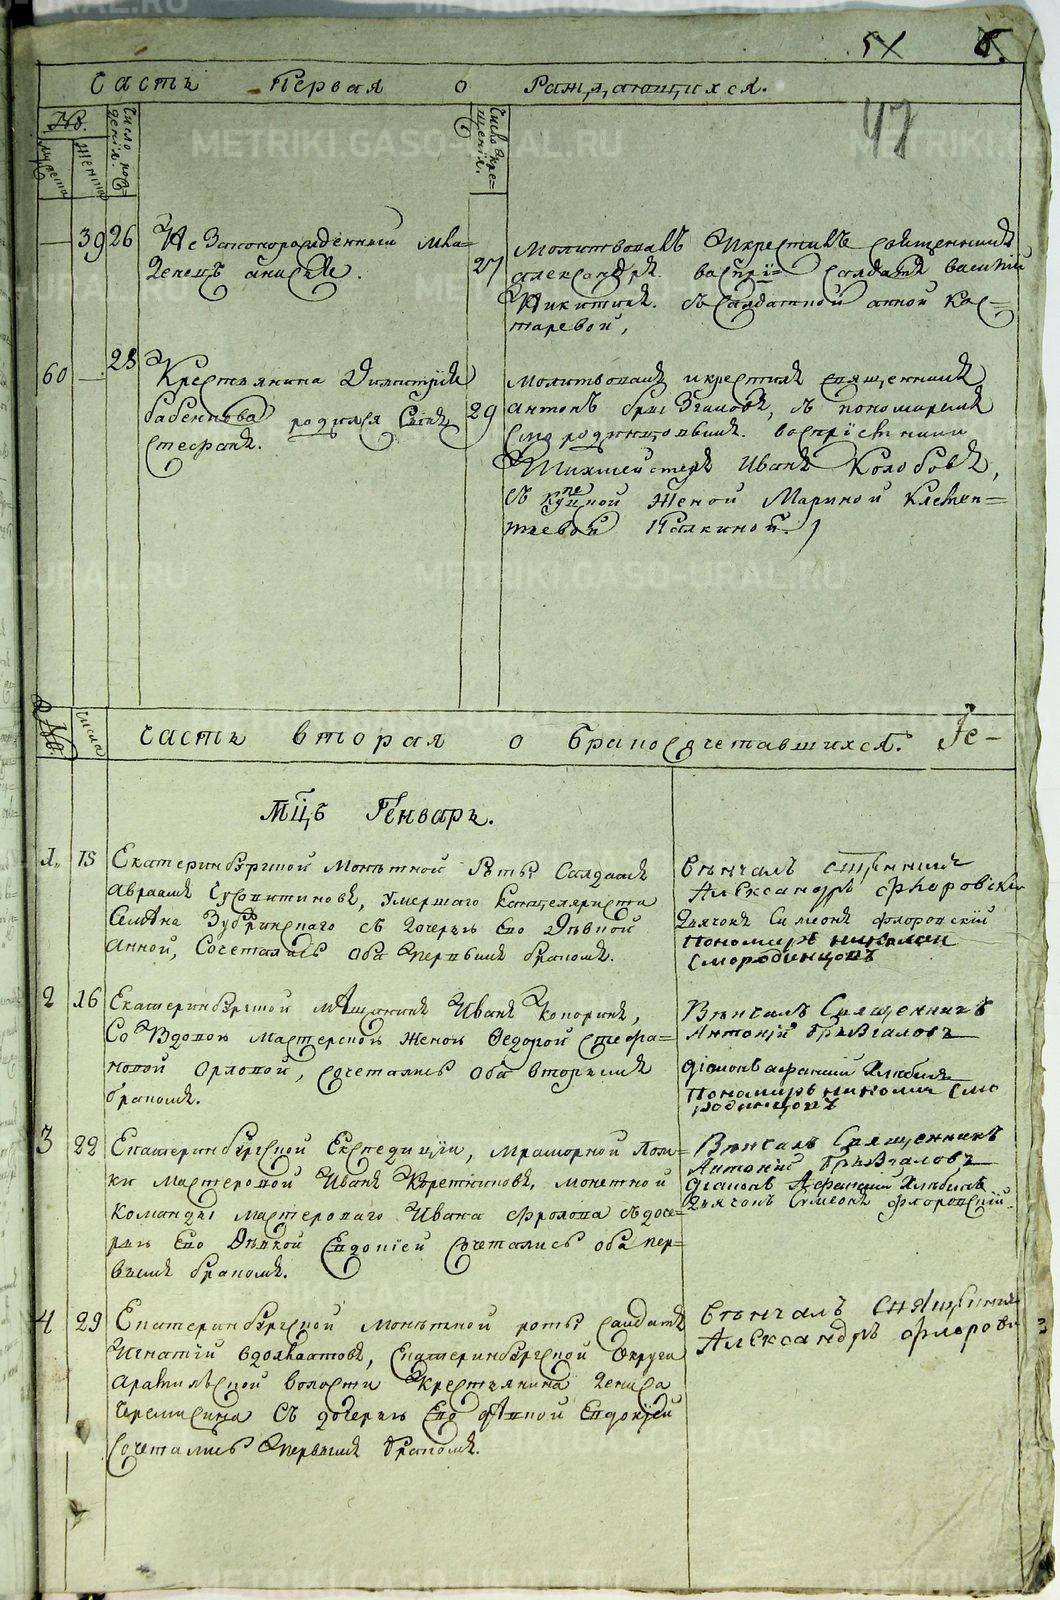 METRIKI.GASO-URAL.RU
47
Часть Первая о Раждающихся.
№.
мужеска
женска
Число рож=
денія.
Число кре=
щенія.
39 26 Незаконорожденный мла=
денецъ анисья.
27 Молитвовалъ Икрестилъ священникъ
александръ. воспрі= салдатъ василій
Никитинъ. съ салдаткой анной Кос=
таревой,
60 28 Крестьянина Димитрія
бабенкова родился Сынъ
стефанъ.
29 Молитвовалъ икрестилъ священникъ
антонъ брызгаловъ, съ пономаремъ
смородинцовымъ. воспріемники
Шихмейстеръ Иванъ Колобовъ,
съ женой Мариной Клемен=
тьевой Палкиной.
№.
число
часть вторая о бракосочетавшихся. Ге-
Мцъ Генварь.
1. 15 Екатеринбургской Монѣтной Роты Салдатъ
авраамъ, умершаго Канцеляриста
Семена Зубринскаго съ дочерью Ево Дѣвкой
Анной, Сочетались оба первымъ бракомъ.
Вѣнчалъ сщенникъ
Александръ Флоровскій
Дьячокъ Симеонъ флоровскій
Пономарь николай
Смородинцовъ
2 16 Екатеринбургской мѣщанинъ Иванъ Копоринъ,
Со Вдовою Мастерской Женою Федорой стефа=
новой Орловой, сочетались Оба вторымъ
бракомъ.
Вѣнчалъ Священникъ
Антоній Брызгаловъ
діаконъ афанасій Хлябинъ
Пономарь николай Смо
родинцовъ
3 22 Екатеринбургской Експедиціи, мраморной Лом=
ки Мастеровой Иванъ Коретниковъ, монетной
команды мастероваго Ивана Фролова съ доче=
рью Ево Дѣвкой Евдокіей сочетались оба пер=
вымъ бракомъ.
Вѣнчалъ Священникъ
Антоній Брызгаловъ
діаконъ Афанасій Хлябинъ
Дьячокъ Симеонъ Флоровскій.
4 29 Екатеринбургской Монѣтной роты салдатъ
Игнатій, Екатеринбургской Округи
арамильской волости крестьянина Дениса
Черемисина Съ дочерью Ево Евдокіей
Сочетались первымъ бракомъ.
вѣнчалъ священникъ
Александръ Флоровс